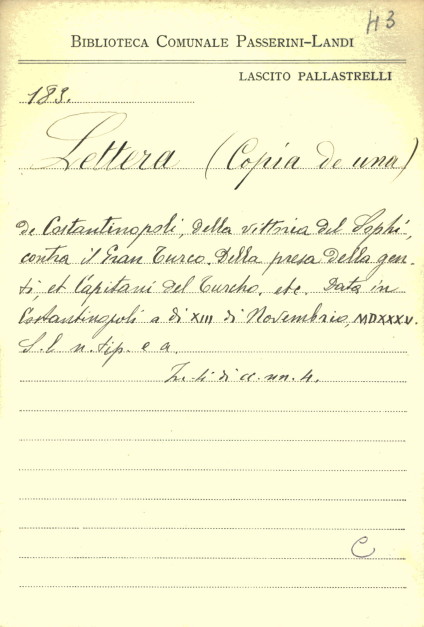 H3
BIBLIOTECA COMUNALE PASSERINI-LANDI
LASCITO PALLASTRELLI
183.
Lettera (Copia de una)
de Costantinopoli, della vittoria del Sophi,
contra il Gran Turco. Della presa della gen-
ti, et Capitani del Turcho. etc. Data in
Costantinopoli a di XIII di Novembrio, MDXXXV.
S. l. n. tip. e a.
di cc. nn. 4.
C